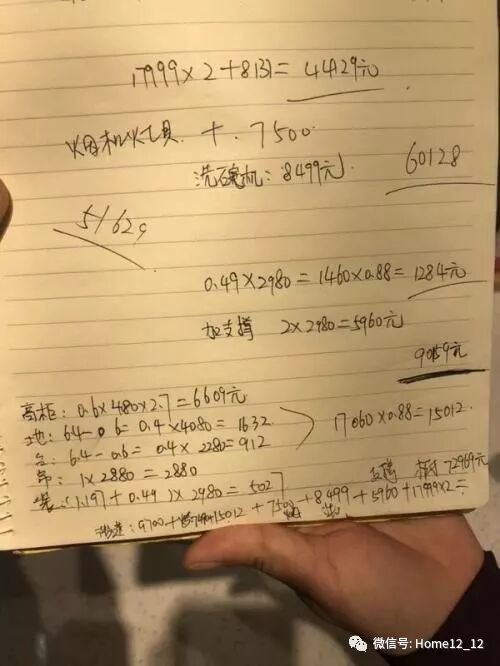 17999×2+8131=44129元
烟机灶具 + 7500
洗碗机:8499元 60128
51629
0.49×2980=1460×0.88=1284元
加支撑 2×2980=5960元
9059元
高柜:0.6×480×2.7=6609元
地:6.4-0.6=0.4×4080=1632
台:6.4-0.6=0.4×2280=912
吊:1×2880=2880
17060×0.88=15012
装:(1.197+0.49)×2980=5027
72969元
15012+7500+8499+5960+17999×2=
微信号: Home12_12